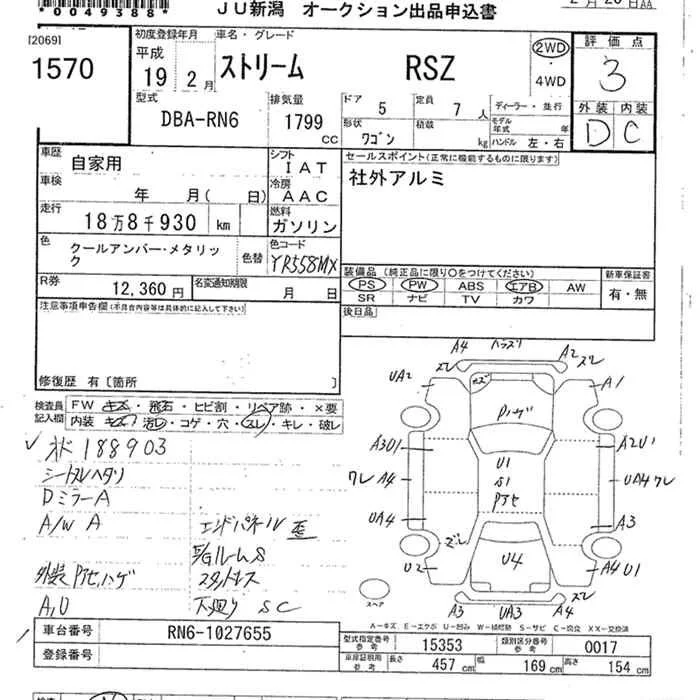 *0049388*
JU新潟 オークション出品申込書
2月26日AA
[2069]
1570
初度登録年月
平成
19年2月
車名・グレード
ストリーム RSZ
2WD
4WD
評価点
3
外装 内装
D C
型式
DBA-RN6
排気量
1799
CC
ドア
5
定員
7人
形状
ワゴン
積載
kg
ディーラー・並行
モデル年式 年
ハンドル 左・右
車歴
自家用
車検
年 月( 日)
走行
18万8千930 km
色
クールアンバー・メタリック
色替
シフト
IAT
冷房
AAC
燃料
ガソリン
色コード
YR558MX
セールスポイント(正常に機能するものに限ります)
社外アルミ
R券
12,360円
名変通知期限
月 日
装備品(純正品に限り○をつけてください)
PS PW ABS エアB AW
SR ナビ TV カワ
新車保証書
有・無
後日品
注意事項申告欄(不具合内容等は具体的に記入して下さい)
修復歴 有〔箇所 〕
検査員記入欄
FW キズ・飛石・ヒビ割・リペア跡・×要
内装 キズ・汚レ・コゲ・穴・スレ・キレ・破レ
188903
シートスレヘタリ
DミラーA
A/W A
エンドパネル歪
E/GルームS
外装Pアセ、ハゲ
スタッドレス
A,U
下廻り SC
A4 ハラズリ A2 ズレ
ズレ
UA2
A1
キズ
Pハゲ
A3U1
A2U1
ワレ A4
U1
S1
Pアセ
UA4 ワレ
UA4
A3
ズレ
U2
U4
A4 U1
A3 UA3 A4
ズレ
スペア
A−キズ E−エクボ U−凹ミ W−補修跡 S−サビ C−腐食 XX−交換済
車台番号
RN6-1027655
登録番号
型式指定番号
参考
15353
類別区分番号
参考
0017
車庫証明用
参考
長さ 457cm 幅 169cm 高さ 154cm